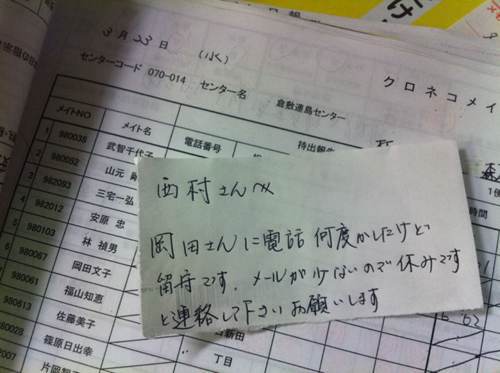 3月23日 (水)
クロネコメイ
センターコード 070-014 センター名 倉敷連島センター
メイトNO メイト名 電話番号 持出報告
時間
1 980035 武智千代子
2 980052 山元
3 982093 三宅一弘
4 982012 安原 忠
5 980103 林 禎男
6 980067 岡田文子
980061 福山知恵
980613 佐藤美子
980029 篠原日出幸
片岡
新田
丁目
西村さんへ
岡田さんに電話何度かしたけど
留守です、メールが少ないので休みです
と連絡して下さいお願いします